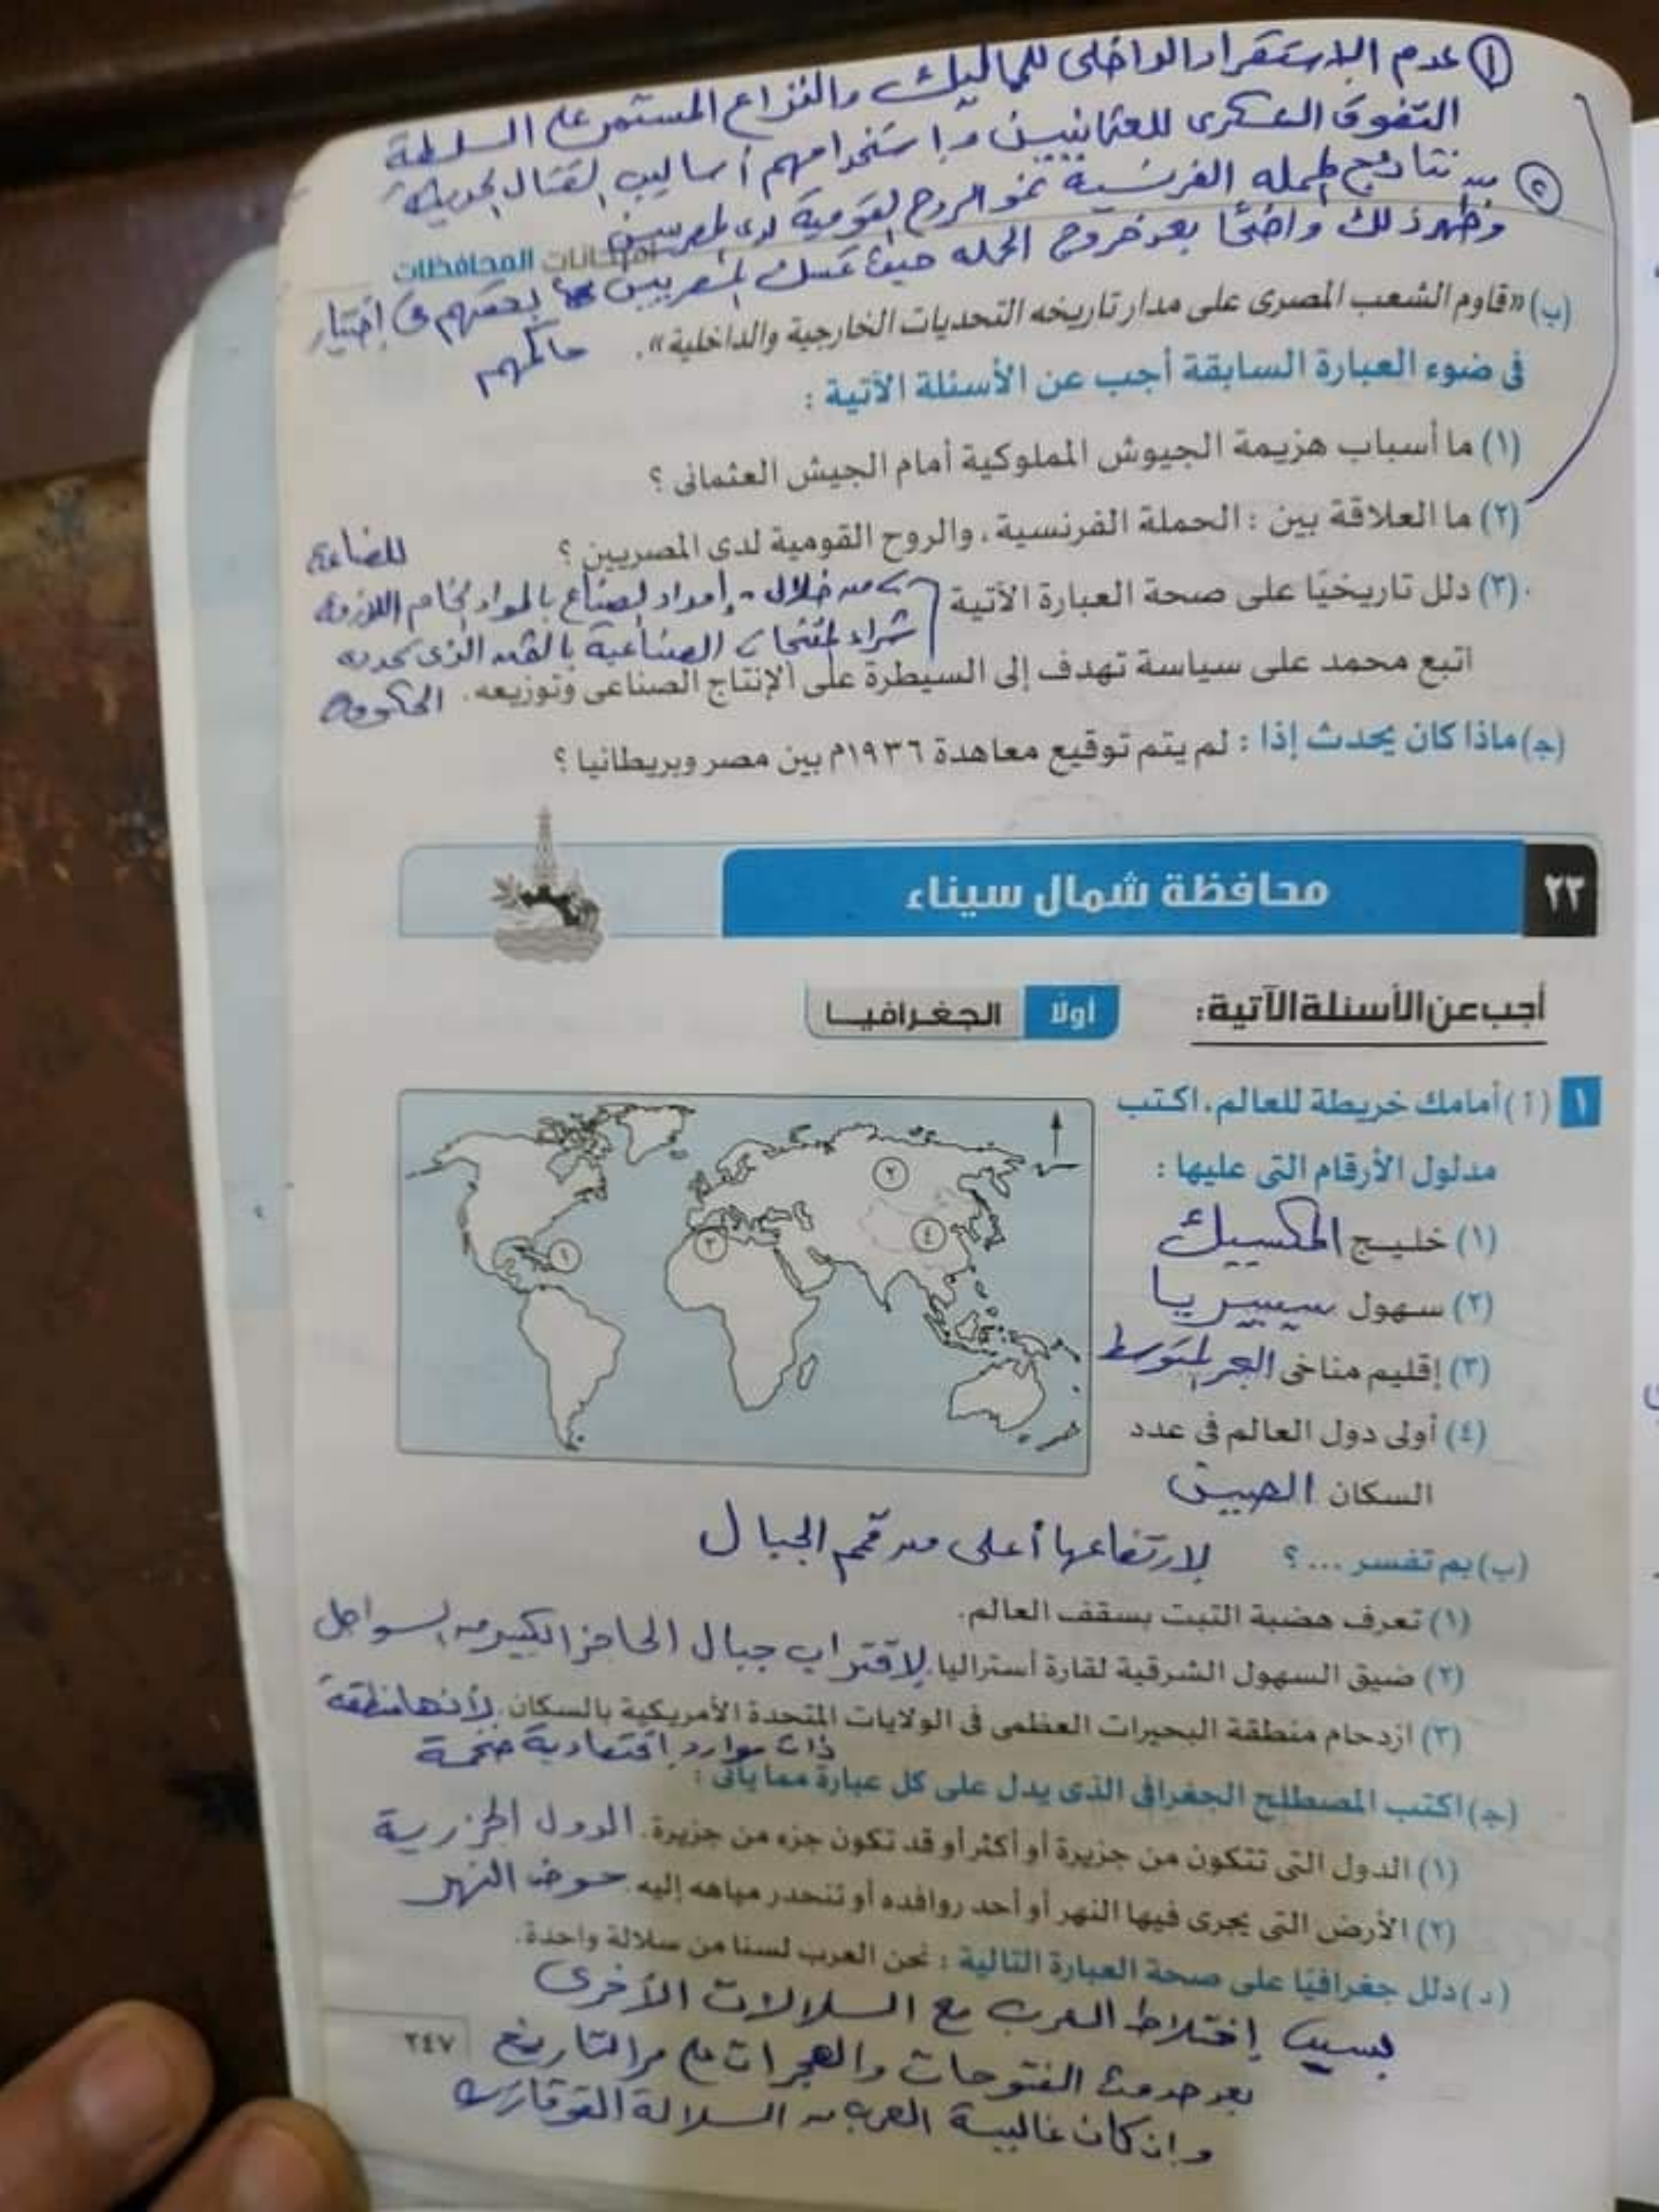 ① عدم الاستقرار الداخلى للمماليك والنزاع المستمر على السلطة
التفوق العسكرى للعثمانيين واستخدامهم أساليب القتال الحديثة
② من نتائج الحملة الفرنسية نمو الروح القومية لدى المصريين
وظهر ذلك واضحًا بعد خروج الحملة حيث تمسك المصريين بحقهم فى إختيار
حاكمهم
امتحانات المحافظات
(ب) «قاوم الشعب المصرى على مدار تاريخه التحديات الخارجية والداخلية».
فى ضوء العبارة السابقة أجب عن الأسئلة الآتية :
(١) ما أسباب هزيمة الجيوش المملوكية أمام الجيش العثمانى ؟
(٢) ما العلاقة بين : الحملة الفرنسية، والروح القومية لدى المصريين ؟
للصناعة
(٣) دلل تاريخيًا على صحة العبارة الآتية
من خلال - إمداد الصناع بالمواد الخام اللازمة
شراء المنتجات الصناعية بالثمن الذى تحدده
اتبع محمد على سياسة تهدف إلى السيطرة على الإنتاج الصناعى وتوزيعه. الحكومة
(ج) ماذا كان يحدث إذا : لم يتم توقيع معاهدة ١٩٣٦م بين مصر وبريطانيا ؟
٢٣ محافظة شمال سيناء
أجب عن الأسئلة الآتية: أولًا الجغرافيا
١ (أ) أمامك خريطة للعالم، اكتب
مدلول الأرقام التى عليها :
(١) خليج المكسيك
(٢) سهول سيبيريا
(٣) إقليم مناخى البحر المتوسط
(٤) أولى دول العالم فى عدد
السكان الصين
٢
٤
٣
١
(ب) بم تفسر ... ؟ لارتفاعها أعلى من قمم الجبال
(١) تعرف هضبة التبت بسقف العالم.
(٢) ضيق السهول الشرقية لقارة أستراليا. لاقتراب جبال الحاجز الكبير من السواحل
(٣) ازدحام منطقة البحيرات العظمى فى الولايات المتحدة الأمريكية بالسكان. لأنها منطقة
ذات موارد إقتصادية ضخمة
(ج) اكتب المصطلح الجغرافى الذى يدل على كل عبارة مما يأتى :
(١) الدول التى تتكون من جزيرة أو أكثر أو قد تكون جزء من جزيرة. الدول الجزرية
(٢) الأرض التى يجرى فيها النهر أو أحد روافده أو تنحدر مياهه إليه. حوض النهر
(د) دلل جغرافيًا على صحة العبارة التالية : نحن العرب لسنا من سلالة واحدة.
بسبب إختلاط العرب مع السلالات الأخرى
بعد حدوث الفتوحات والهجرات على مر التاريخ
وإن كان غالبية العرب من السلالة القوقازية
٢٤٧